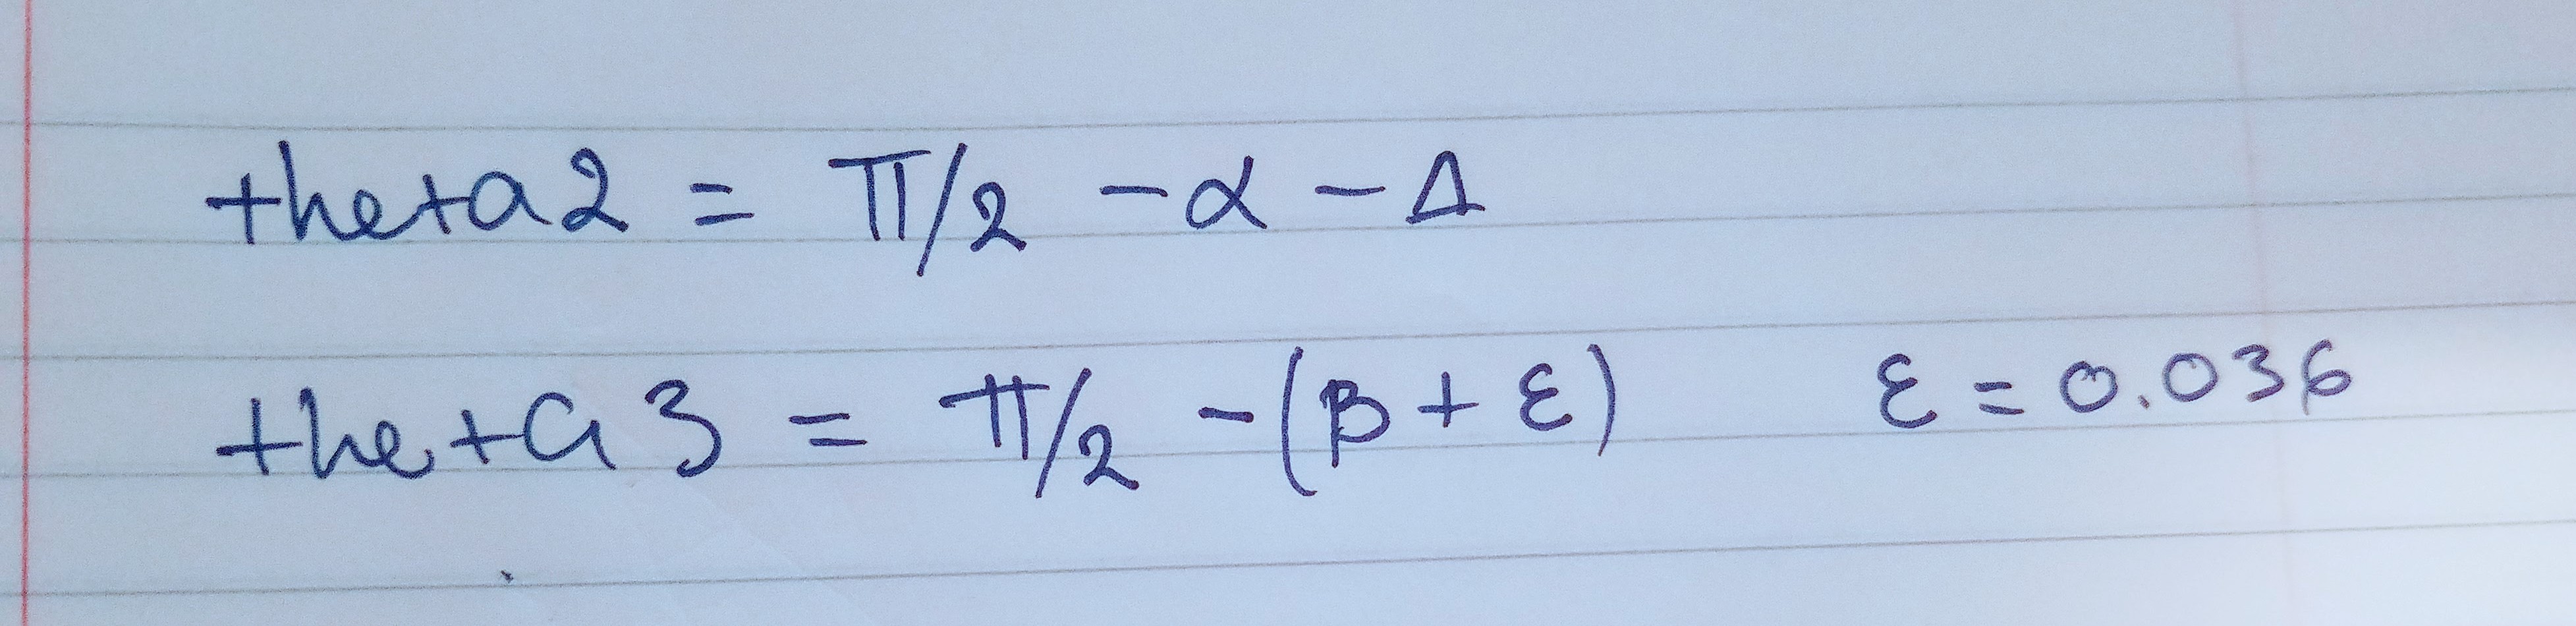 theta2 = π/2 - α - Δ
theta3 = π/2 - (β + ε) ε = 0.036